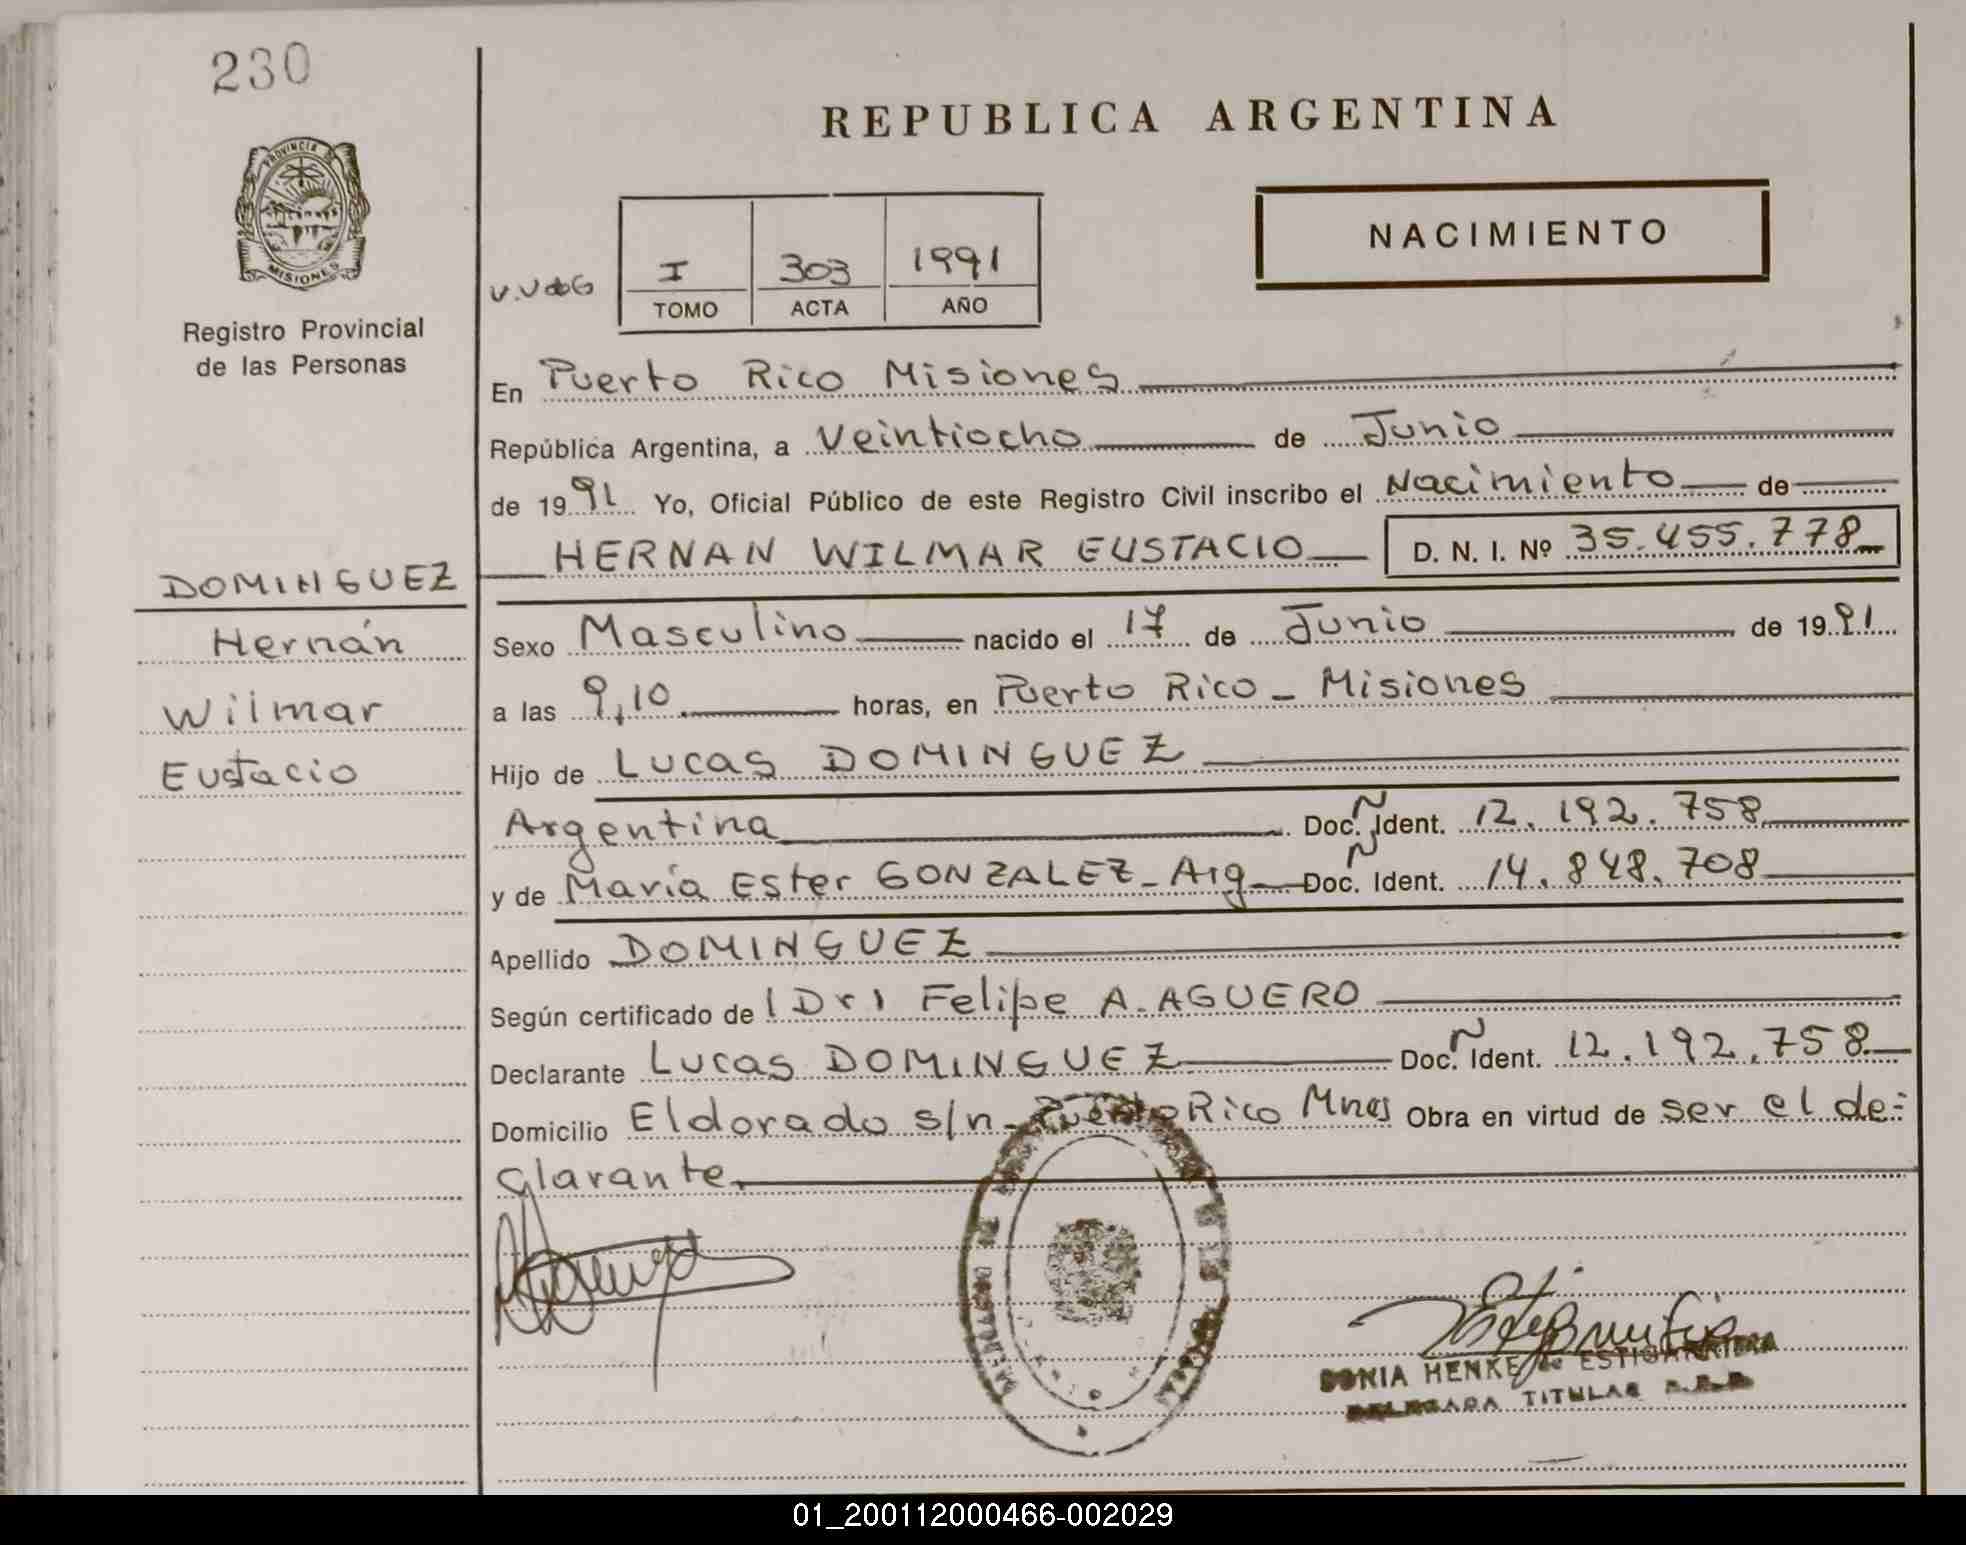 230
REPUBLICA ARGENTINA
PROVINCIA DE
MISIONES
Registro Provincial
de las Personas
NACIMIENTO
I 303 1991
TOMO ACTA AÑO
En Puerto Rico Misiones
República Argentina, a Veintiocho de Junio
de 1991 Yo, Oficial Público de este Registro Civil inscribo el Nacimiento de
HERNAN WILMAR EUSTACIO D. N. I. Nº 35.455.778
DOMINGUEZ
Hernán
Wilmar
Eustacio
Sexo Masculino nacido el 17 de Junio de 1991
a las 9,10 horas, en Puerto Rico - Misiones
Hijo de Lucas DOMINGUEZ
Argentina Doc. Ident. 12.192.758
y de María Ester GONZALEZ - Arg Doc. Ident. 14.848.708
Apellido DOMINGUEZ
Según certificado de Dr Felipe A. AGUERO
Declarante Lucas DOMINGUEZ Doc. Ident. 12.192.758
Domicilio Eldorado s/n - Puerto Rico Mnes Obra en virtud de ser el de-
clarante
SONIA HENKE de ESTIGARRIBIA
DELEGADA TITULAR
01_200112000466-002029